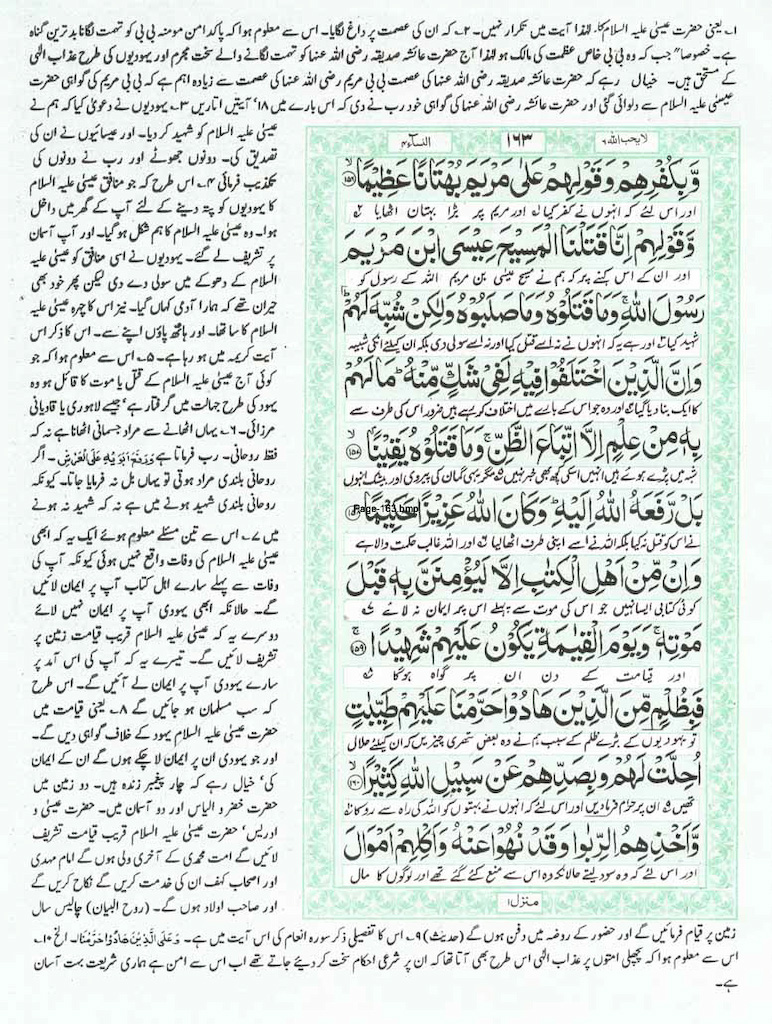 ۱۔ یعنی حضرت عیسیٰ علیہ السلام کا۔ لہٰذا آیت میں تکرار نہیں۔ ۲۔ کہ ان کی عصمت پر داغ لگایا۔ اس سے معلوم ہوا کہ پاکدامن مومنہ بی بی کو تہمت لگانا بدترین گناہ
ہے۔ خصوصاً" جب کہ وہ بی بی خاص عظمت کی مالک ہو لہٰذا آج حضرت عائشہ صدیقہ رضی اللہ عنہا کو تہمت لگانے والے سخت مجرم اور یہودیوں کی طرح عذاب الٰہی
کے مستحق ہیں۔ خیال رہے کہ حضرت عائشہ صدیقہ رضی اللہ عنہا کی عصمت بی بی مریم رضی اللہ عنہا کی عصمت سے زیادہ اہم ہے کہ بی بی مریم کی گواہی حضرت
عیسیٰ علیہ السلام سے دلوائی گئی اور حضرت عائشہ رضی اللہ عنہا کی گواہی خود رب نے دی کہ اس بارے میں ۱۸' آیتیں اتاریں ۳۔ یہودیوں نے دعویٰ کیا کہ ہم نے
عیسیٰ علیہ السلام کو شہید کر دیا۔ اور عیسائیوں نے ان کی
تصدیق کی۔ دونوں جھوٹے اور رب نے دونوں کی
تکذیب فرمائی ۴۔ اس طرح کہ جو منافق عیسیٰ علیہ السلام
کا یہودیوں کو پتہ دینے کے لئے آپ کے گھر میں داخل
ہوا۔ وہ عیسیٰ علیہ السلام کا ہم شکل ہو گیا۔ اور آپ آسمان
پر تشریف لے گئے۔ یہودیوں نے اسی منافق کو عیسیٰ علیہ
السلام کے دھوکے میں سولی دے دی لیکن پھر خود بھی
حیران تھے کہ ہمارا آدمی کہاں گیا۔ نیز اس کا چہرہ عیسیٰ علیہ
السلام کا سا تھا۔ اور ہاتھ پاؤں اپنے سے۔ اس کا ذکر اس
آیت کریمہ میں ہو رہا ہے۔ ۵۔ اس سے معلوم ہوا کہ جو
کوئی آج عیسیٰ علیہ السلام کے قتل یا موت کا قائل ہو وہ
یہود کی طرح جہالت میں گرفتار ہے' جیسے لاہوری یا قادیانی
مرزائی۔ ۶۔ یہاں اٹھانے سے مراد جسمانی اٹھانا ہے نہ کہ
فقط روحانی۔ رب فرماتا ہے وَرَفَعَ اَبَوَيْهِ عَلَى الْعَرْشِ۔ اگر
روحانی بلندی مراد ہوتی تو یہاں بل نہ فرمایا جاتا۔ کیونکہ
روحانی بلندی شہید ہونے میں ہے نہ کہ شہید نہ ہونے
میں ۷۔ اس سے تین مسئلے معلوم ہوئے ایک یہ کہ ابھی
عیسیٰ علیہ السلام کی وفات واقع نہیں ہوئی کیونکہ آپ کی
وفات سے پہلے سارے اہل کتاب آپ پر ایمان لائیں
گے۔ حالانکہ ابھی یہودی آپ پر ایمان نہیں لائے
دوسرے یہ کہ عیسیٰ علیہ السلام قریب قیامت زمین پر
تشریف لائیں گے۔ تیسرے یہ کہ آپ کی اس آمد پر
سارے یہودی آپ پر ایمان لے آئیں گے۔ اس طرح
کہ سب مسلمان ہو جائیں گے ۸۔ یعنی قیامت میں
حضرت عیسیٰ علیہ السلام یہود کے خلاف گواہی دیں گے۔
اور جو یہودی ان پر ایمان لا چکے ہوں گے ان کے ایمان
کی' خیال رہے کہ چار پیغمبر زندہ ہیں۔ دو زمین میں
حضرت خضر و الیاس اور دو آسمان میں۔ حضرت عیسیٰ و
ادریس' حضرت عیسیٰ علیہ السلام قریب قیامت تشریف
لائیں گے امت محمدی کے آخری ولی ہوں گے امام مہدی
اور اصحاب کہف ان کی خدمت کریں گے نکاح کریں گے
اور صاحب اولاد ہوں گے۔ (روح البیان) چالیس سال
لا یحب اللہ ۶
۱۶۳
النساء ۴
وَّبِكُفْرِهِمْ وَقَوْلِهِمْ عَلٰى مَرْيَمَ بُهْتَانًا عَظِيْمًا ﴿۱۵۶﴾
اور اس لئے کہ انہوں نے کفر کیا اور مریم پر بڑا بہتان اٹھایا
وَّقَوْلِهِمْ اِنَّا قَتَلْنَا الْمَسِيْحَ عِيْسَى ابْنَ مَرْيَمَ
اور ان کے اس کہنے پر کہ ہم نے مسیح عیسیٰ بن مریم اللہ کے رسول کو
رَسُوْلَ اللّٰهِ ۚ وَمَا قَتَلُوْهُ وَمَا صَلَبُوْهُ وَلٰكِنْ شُبِّهَ لَهُمْ ؕ
شہید کیا اور ہے یہ کہ انہوں نے نہ اسے قتل کیا اور نہ اسے سولی دی بلکہ ان کیلئے اسکی شبیہ
وَاِنَّ الَّذِيْنَ اخْتَلَفُوْا فِيْهِ لَفِىْ شَكٍّ مِّنْهُ ؕ مَا لَهُمْ
کا ایک بنا دیا گیا اور وہ جو اس کے بارے میں اختلاف کر رہے ہیں ضرور اس کی طرف سے
بِهٖ مِنْ عِلْمٍ اِلَّا اتِّبَاعَ الظَّنِّ ۚ وَمَا قَتَلُوْهُ يَقِيْنًا ﴿۱۵۷﴾
شبہ میں پڑے ہوئے ہیں انہیں اسکی کچھ بھی خبر نہیں مگر یہی گمان کی پیروی اور بیشک انہوں
بَلْ رَّفَعَهُ اللّٰهُ اِلَيْهِ ؕ وَكَانَ اللّٰهُ عَزِيْزًا حَكِيْمًا
Page-163.bmp
نے اس کو قتل نہ کیا بلکہ اللہ نے اسے اپنی طرف اٹھا لیا اور اللہ غالب حکمت والا ہے
وَاِنْ مِّنْ اَهْلِ الْكِتٰبِ اِلَّا لَيُؤْمِنَنَّ بِهٖ قَبْلَ
کوئی کتابی ایسا نہیں جو اس کی موت سے پہلے اس پر ایمان نہ لائے
مَوْتِهٖ ۚ وَيَوْمَ الْقِيٰمَةِ يَكُوْنُ عَلَيْهِمْ شَهِيْدًا ﴿۱۵۹﴾
اور قیامت کے دن ان پر گواہ ہوگا
فَبِظُلْمٍ مِّنَ الَّذِيْنَ هَادُوْا حَرَّمْنَا عَلَيْهِمْ طَيِّبٰتٍ
تو یہودیوں کے بڑے ظلم کے سبب ہم نے وہ بعض ستھری چیزیں کہ ان کیلئے حلال
اُحِلَّتْ لَهُمْ وَبِصَدِّهِمْ عَنْ سَبِيْلِ اللّٰهِ كَثِيْرًا ﴿۱۶۰﴾
تھیں ان پر حرام فرما دیں اور اس لئے کہ انہوں نے بہتوں کو اللہ کی راہ سے روکا
وَّاَخْذِهِمُ الرِّبٰوا وَقَدْ نُهُوْا عَنْهُ وَاَكْلِهِمْ اَمْوَالَ
اور اس لئے کہ وہ سود لیتے حالانکہ وہ اس سے منع کئے گئے تھے اور لوگوں کا مال
منزل ۱
زمین پر قیام فرمائیں گے اور حضور کے روضہ میں دفن ہوں گے (حدیث) ۹۔ اس کا تفصیلی ذکر سورہ انعام کی اس آیت میں ہے۔ وَعَلَى الَّذِيْنَ هَادُوْا حَرَّمْنَا۔ الخ ۱۰۔
اس سے معلوم ہوا کہ پچھلی امتوں پر عذاب الٰہی اس طرح بھی آتا تھا کہ ان پر شرعی احکام سخت کر دیئے جاتے تھے اب اس سے امن ہے ہماری شریعت بہت آسان
ہے۔